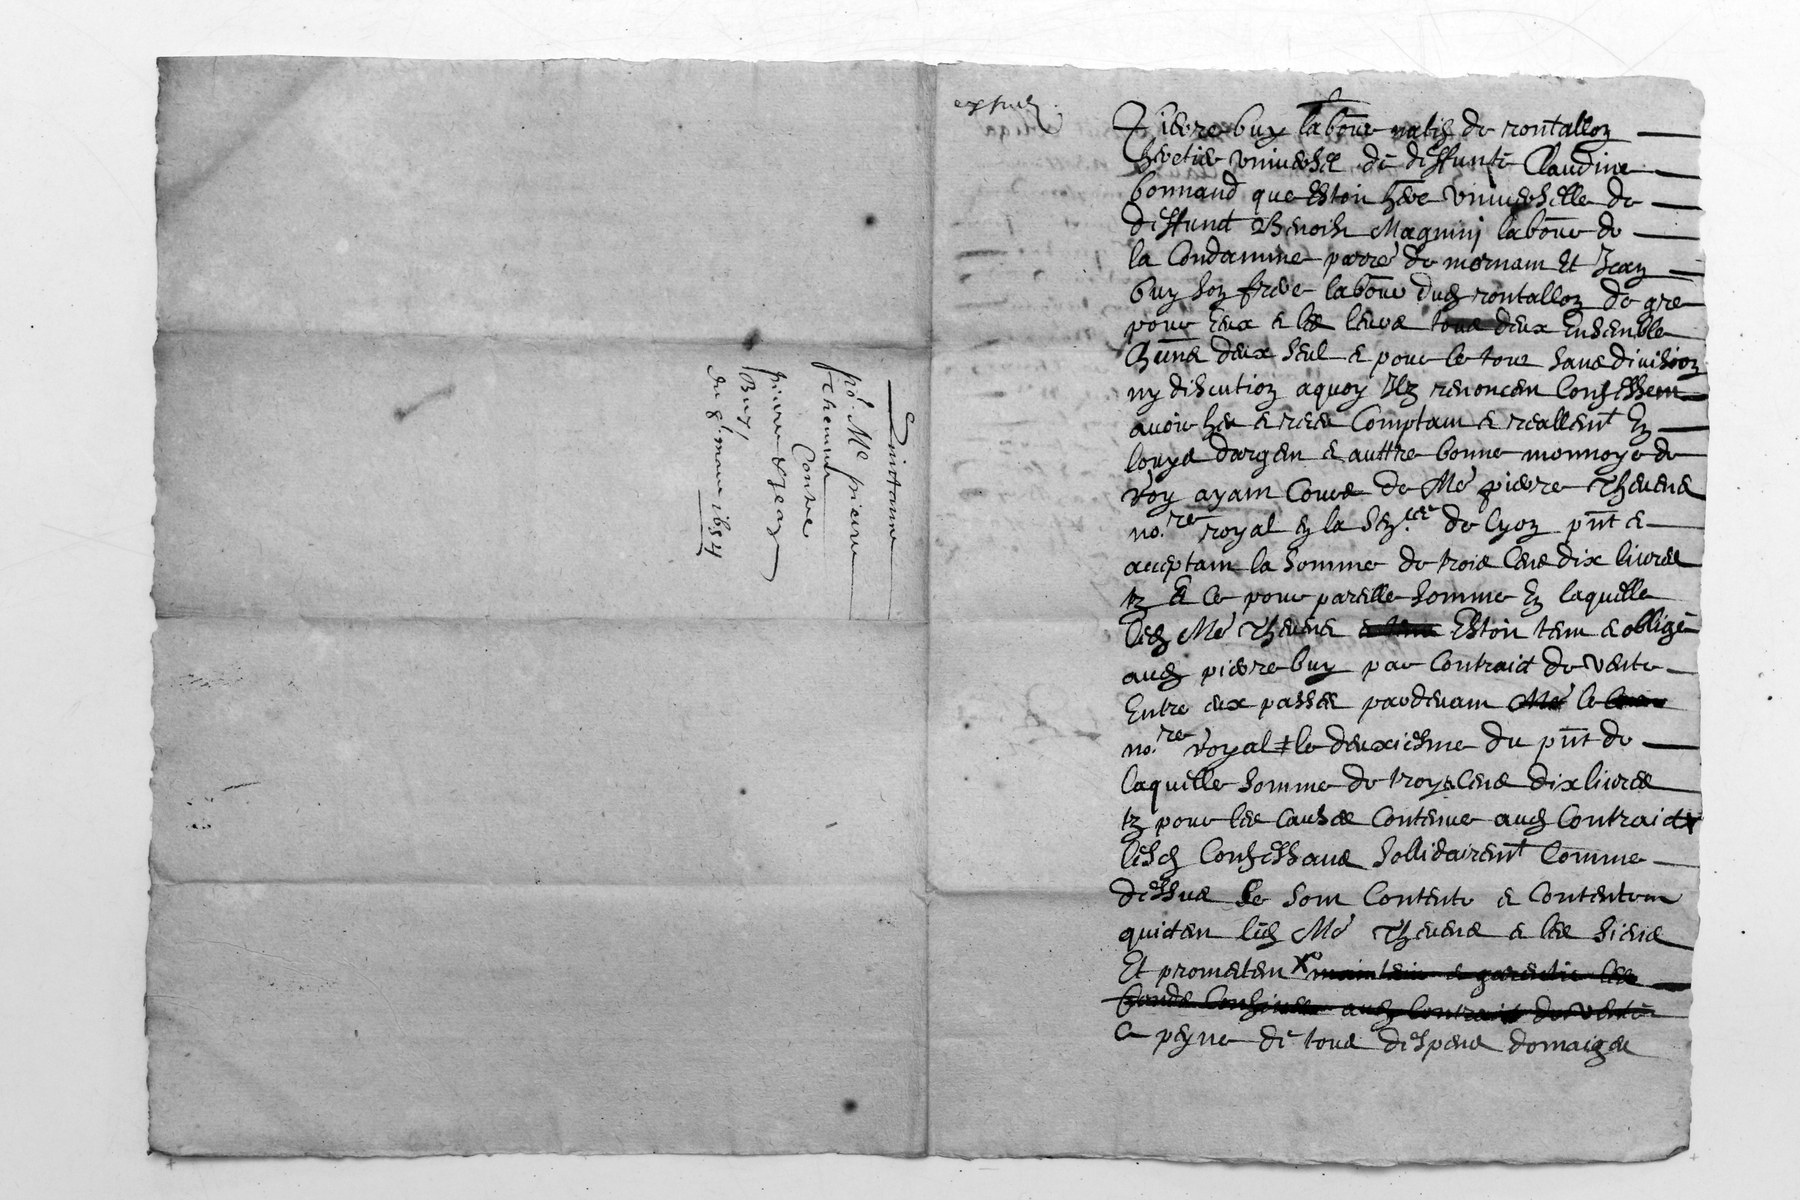 Quictance
po.r Me pierre
thevenet
Contre
pierre & Jean
Buy /
du 8.e mars 1654
exped.
Pierre buy labour natif de rontallon
heretier universel de deffuncte Claudine
bonnand que estoit here universelle de
deffunct Benoist Magnin labour de
la Condamine parre de mornant Et Jean
buy son frere labour dud rontallon de gre
pour eux & les leurs tous deux Ensemble
Chun deux seul & pour le tout sans division
ny discution aquoy Ilz renoncent Confessent
avoir heu & receu Comptant & reallemt En
louys dargent & auttre bonne monnoye de
roy ayant Cours de Me pierre Thevenet
no.re royal en la Sen.cee de lyon pnt &
acceptant la somme de trois Cens dix livres
tz Et Ce pour pareille somme En laquelle
led Me Thevenet Estoit tenu & obligé
aud pierre buy par Contraict de vente
Entre eux passé pardevant Me le
no.re royal le deuxiesme du pnt de
laquelle somme de troys Cens dix livres
tz pour les Causes Contenues aud Contraict
lesd Confessans sollidairemt Comme
dessus se sont Contents & Contentent
quictent led Me Thevenet & les siens
Et promettent X maintenir & garentir les
fonds aud Contrait de vente
a peyne de tous despens domaiges